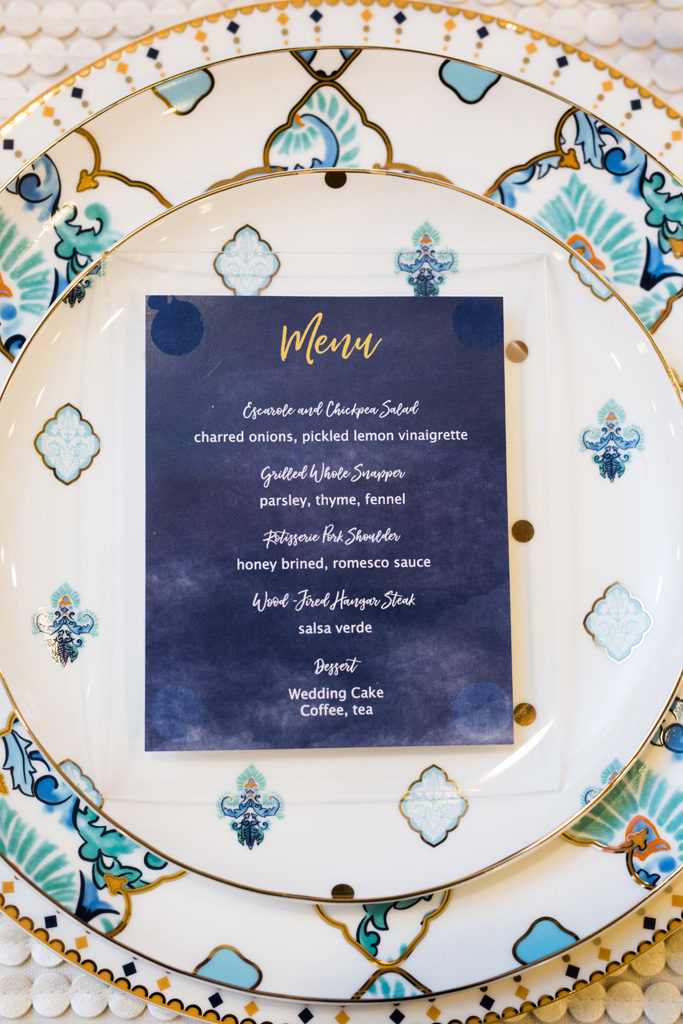 Menu
Escarole and Chickpea Salad
charred onions, pickled lemon vinaigrette
Grilled Whole Snapper
parsley, thyme, fennel
Rotisserie Pork Shoulder
honey brined, romesco sauce
Wood-Fired Hangar Steak
salsa verde
Dessert
Wedding Cake
Coffee, tea